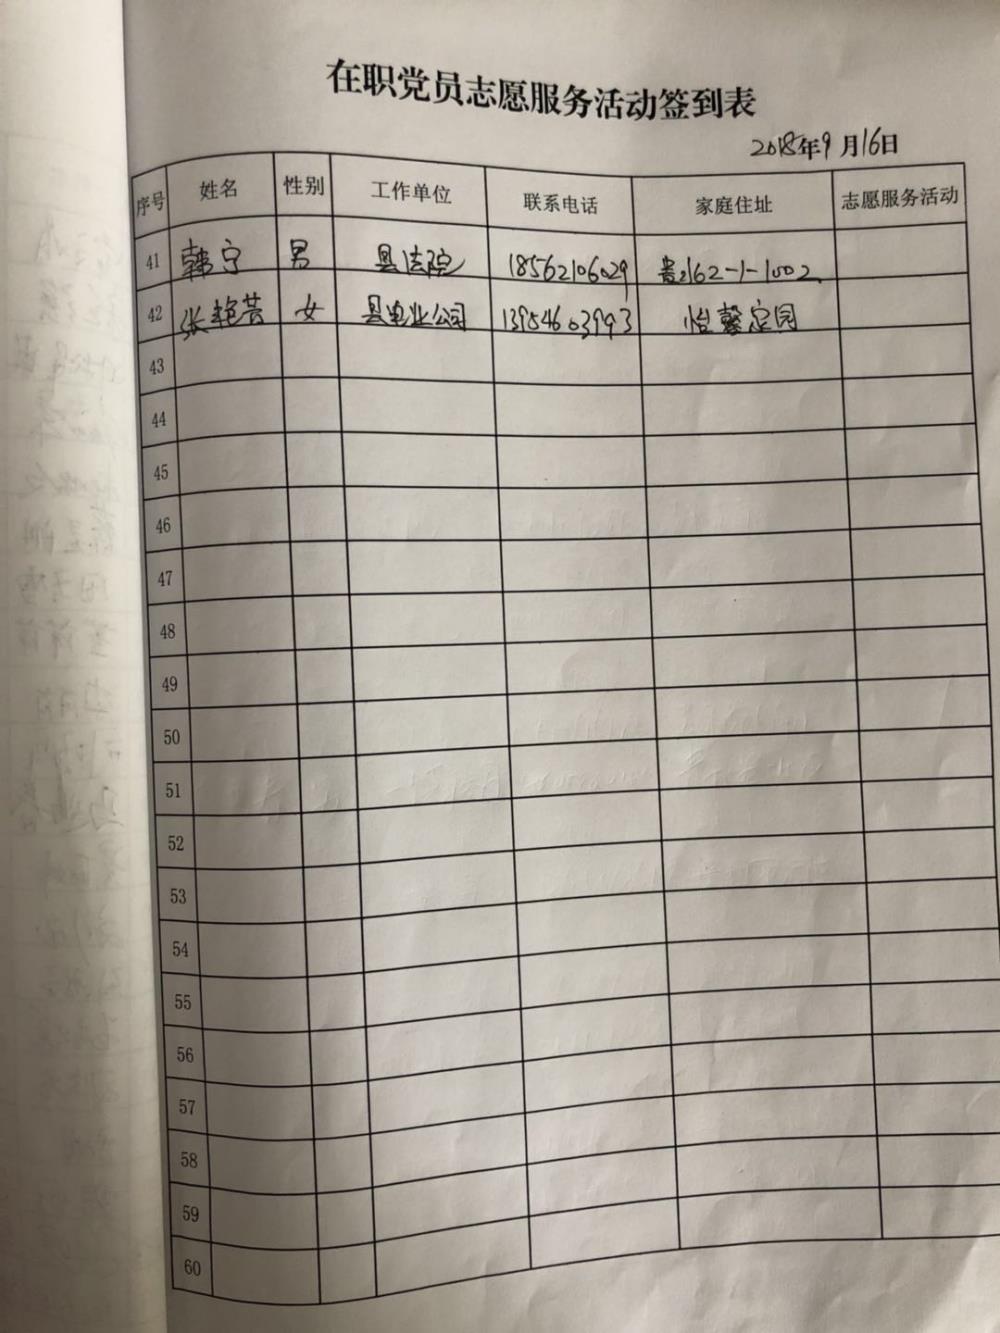 在职党员志愿服务活动签到表
2018年9月16日
序号 姓名 性别 工作单位 联系电话 家庭住址 志愿服务活动
41 韩宁 男 县法院 18562106029 贵都62-1-1002
42 张艳芸 女 县电业公司 13954603993 怡馨家园
43
44
45
46
47
48
49
50
51
52
53
54
55
56
57
58
59
60